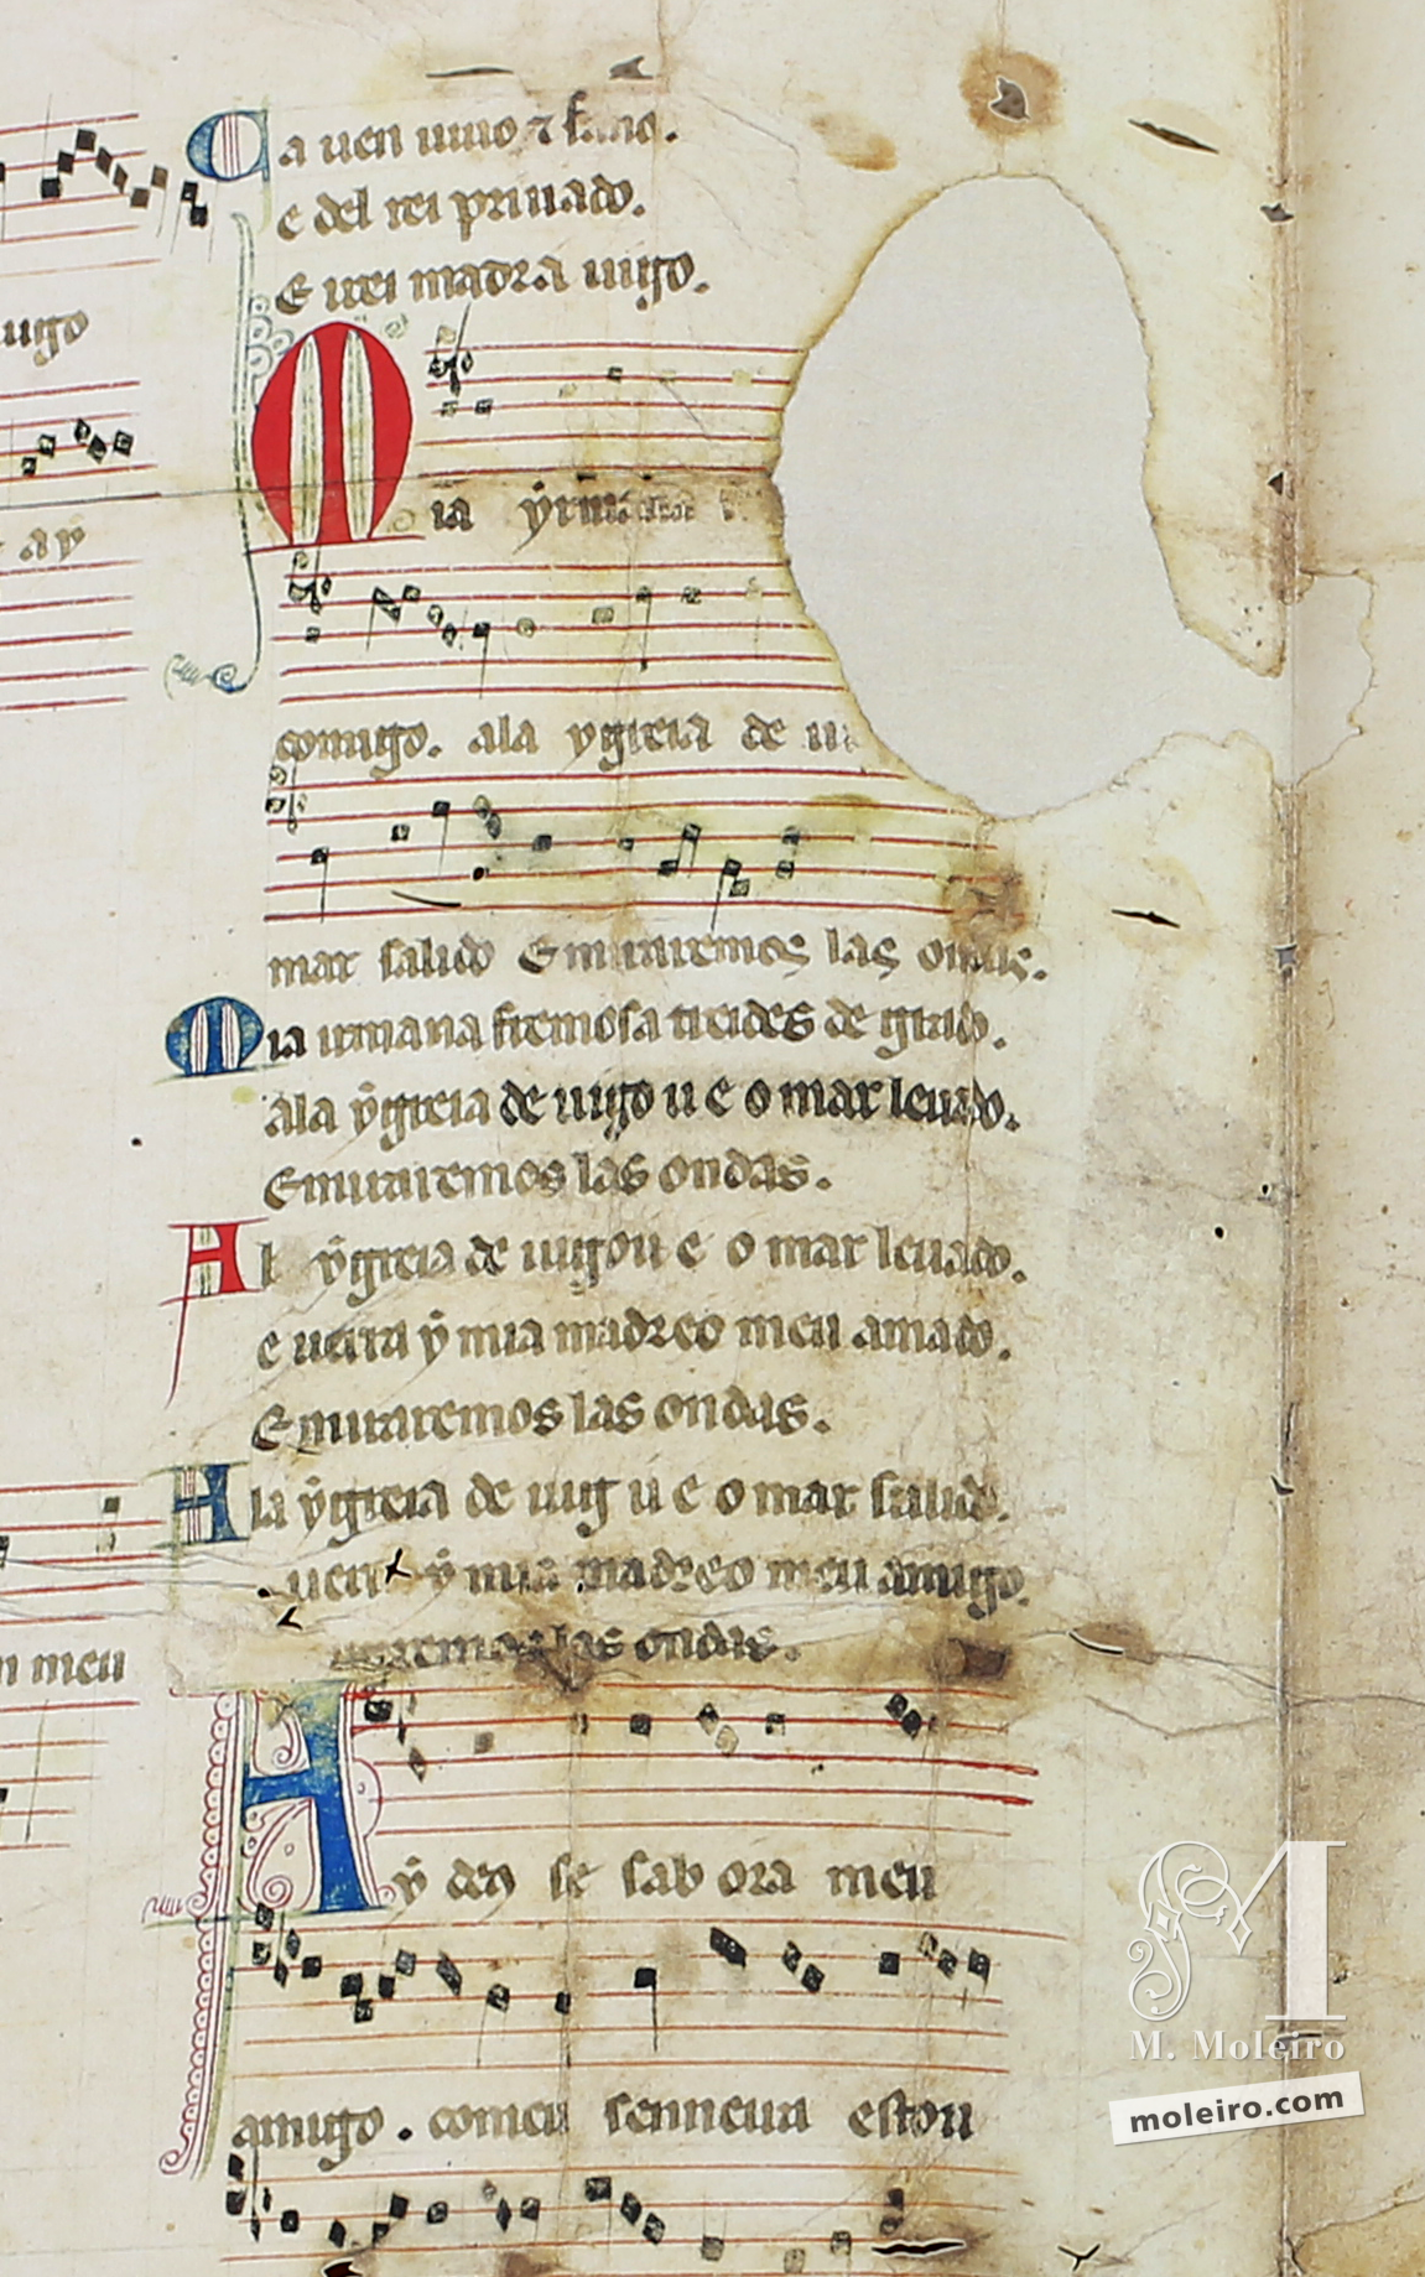 Ca uen uiuo ⁊ sano.
e del rei priuado.
E irei madr a uigo.
uigo
Mia yrmana
ay
comigo. ala ygreia de ui
mar salido E miraremos las ondas.
Mia irmana fremosa treides de grado.
ala ygreia de uigo u e o mar leuado.
E miraremos las ondas.
A l ygreia de uigo u e o mar leuado.
e uerra y mia madre o meu amado.
E miraremos las ondas.
A la ygreia de uig u e o mar salido.
uerr y mia madre o meu amigo.
n meu
miraremos las ondas.
Ay deus se sab ora meu
amigo. com eu senneira estou
M
M. Moleiro
moleiro.com